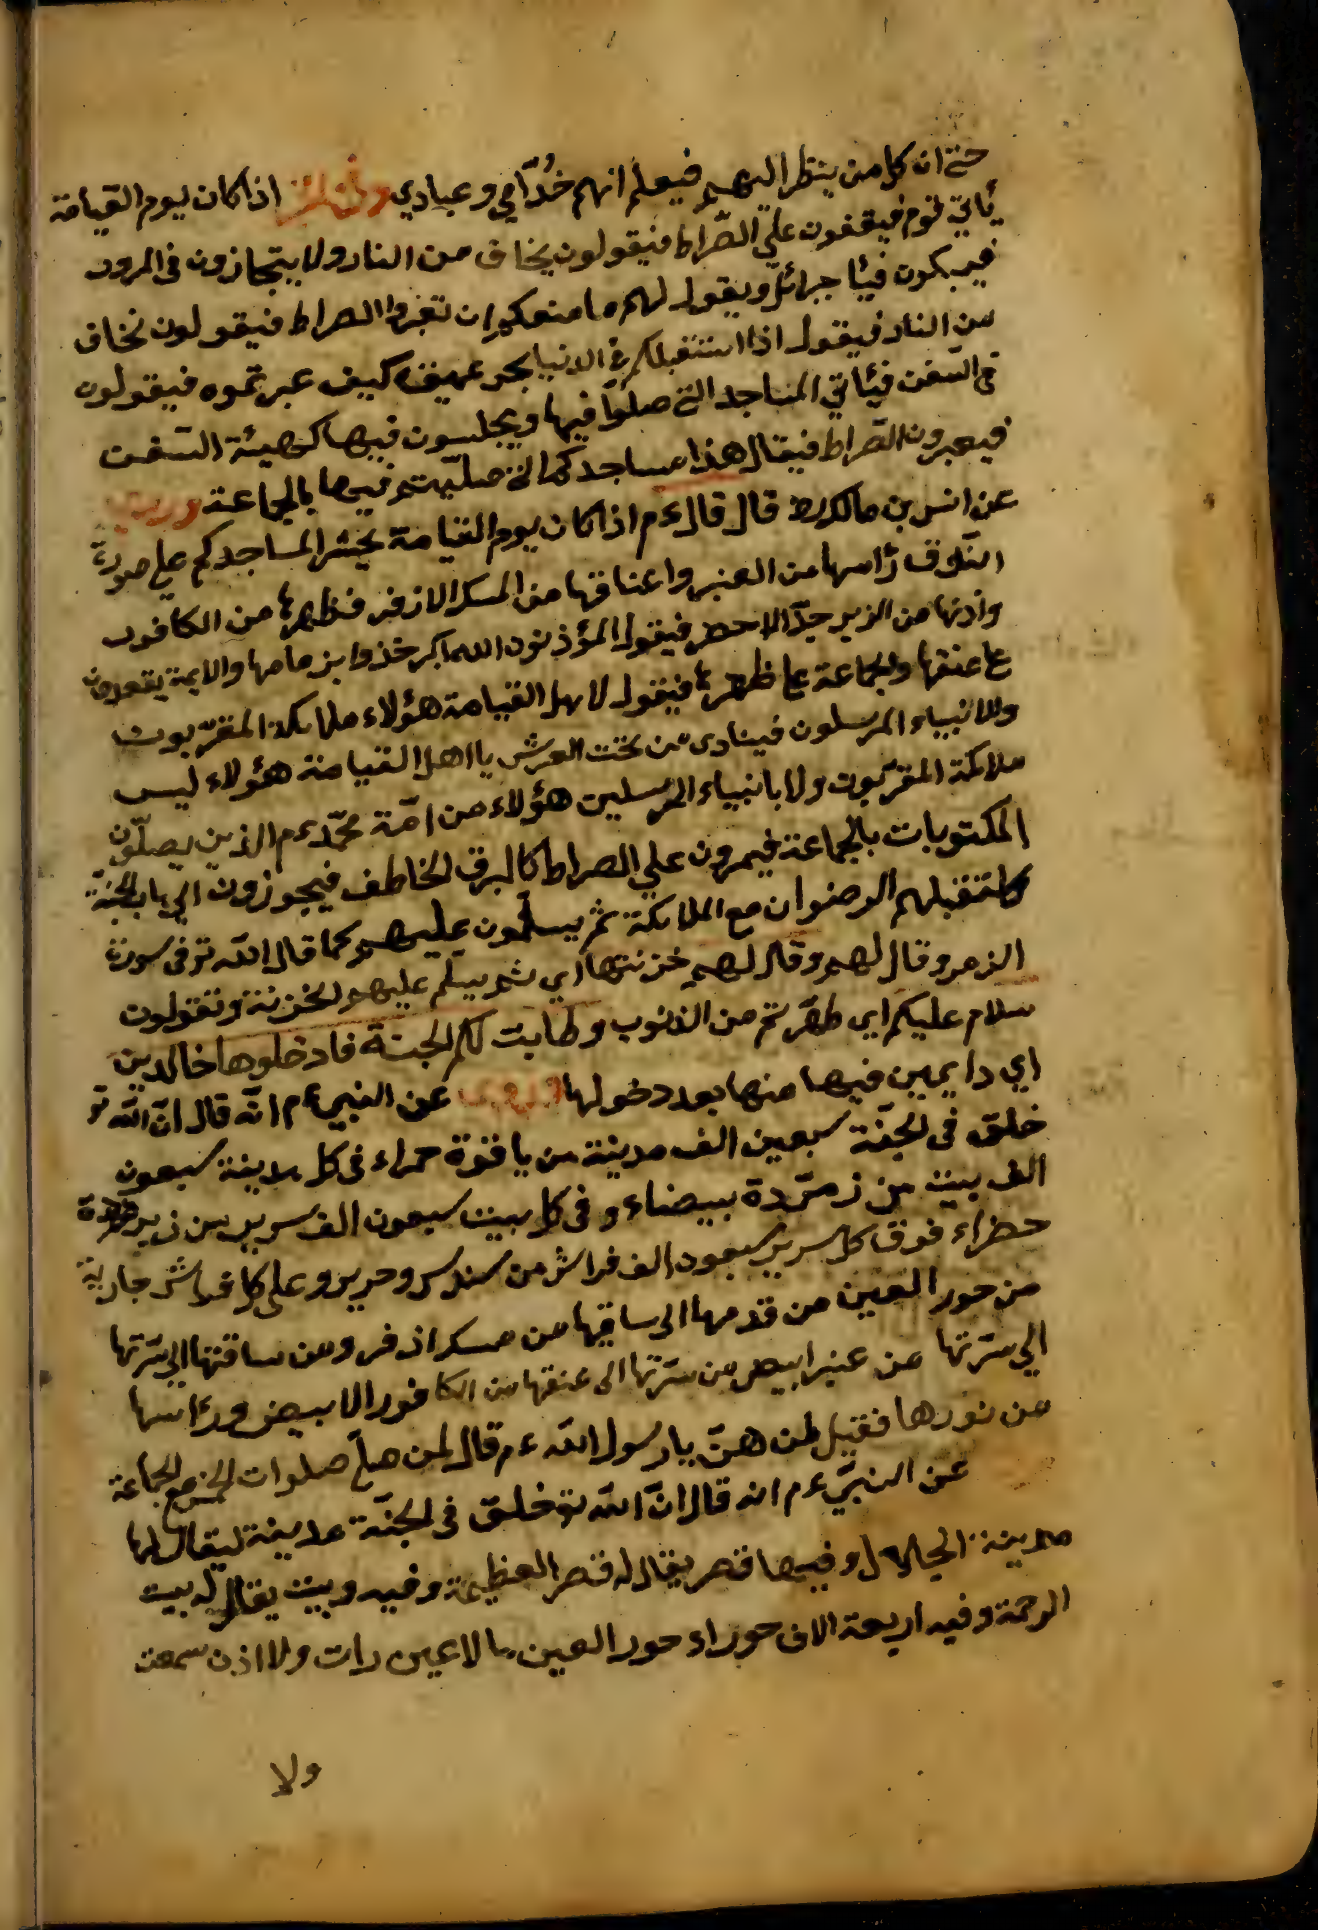 حتى ان كل من ينظر اليهم فيعلم انهم خُدّامي و عبادي اذا كان يوم القيامة
يأتي قوم فيقفون على الصّراط فيقولون يخاف من النار ولا يتجازون فى المرور
فيبكون فيئا جبرائل ويقول لهم ما منعكم ان تعبروا الصراط فيقولون نخاف
من النار فيقول اذا استقبلكم فى الدنيا بحر عميق كيف عبرتموه فيقولون
فى السّفن فيأتي المساجد التى صلوا فيها ويجلسون فيها كهيئة السّفن
فيعبرون الصّراط فيقال هذا مساجدكم التى صلّيتم فيها بالجماعة وروى
عن انس بن مالك رض قال قال ءم اذا كان يوم القيامة يحشر المساجدكم على صورة
النّوق رأسها من العنبر واعناقها من المسك الازفر فظهرها من الكافور
واذنها من الزبرجدّ الاحضر فيقول المؤذنون الله اكبر خذوا بزمامها والايمة يقعدون
على عنقها والجماعة على ظهرها فيقول لاهل القيامة هؤلاء ملائكة المقرّبون
والانبياء المرسلون فينادى من تحت العرش يا اهل القيامة هؤلاء ليس
ملائكة المقرّبون ولا بانبياء المرسلين هؤلاء من امّة محمّد ءم الذين يصلّون
المكتوبات بالجماعة فيمرون على الصراط كالبرق الخاطف فيجوزون الى باب الجنّة
الرضوان مع الملائكة ثم يسلّمون عليهم كما قال الله تو فى سورة
الزمر وقال لهم وقال لهم خزنتها اي ثم يسلّم عليهم الخزنة وتقولون
سلام عليكم اى طهّرتم من الذنوب وطابت لكم الجنة فادخلوها خالدين
اي دايمين فيها منها بعد دخولها وروى عن النبي ءم انّه قال انّ الله تو
خلق فى الجنّة سبعين الف مدينة من ياقوة حمراء فى كل مدينة سبعون
الف بيت من زمرّدة بيضاء وفى كل بيت سبعون الف سرير من
حضراء فوق كل سرير سبعون الف فراش من سندس وحرير وعلى كل فراش جارية
من حور العين من قدمها الى ساقيها من مسك اذفر ومن ساقتها الى سرّتها
الى سرّتها من عنبر ابيض من سرّتها الى عنقها من الكافور الابيض ورءاسها
من نورها فقيل لمن هنّ يا رسول الله ءم قال لمن صلّى صلوات الخمس مع الجماعة
عن النبيّ ءم انه قال انّ الله تو خلق فى الجنّة مدينة ليقال لها
مدينة الجلال وفيها قصر يقال له قصر العظيمة وفيه وبيت يقال له بيت
الرحمة وفيه اربعة الاف حوراء حور العين ما لا عين رات ولا اذن سمعت
ولا